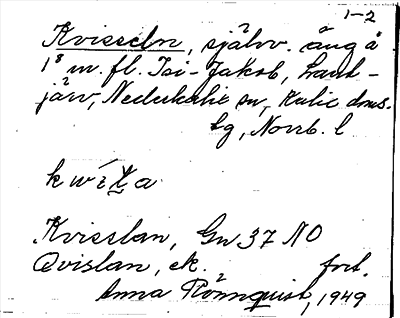 1-2
Kvisseln, självv. äng å
1⁸ m. fl. Isi-Jakob, Land-
järv, Nederkalix sn, Kalix doms.
lg, Norrb. l
kwísḷa
Kvisslan, Gn 37 NO
Qvislan, ek.          fort.
Anna Rönnquist, 1949